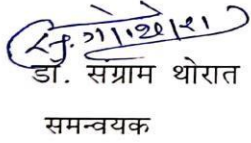 डॉ. संग्राम थोरात
समन्वयक